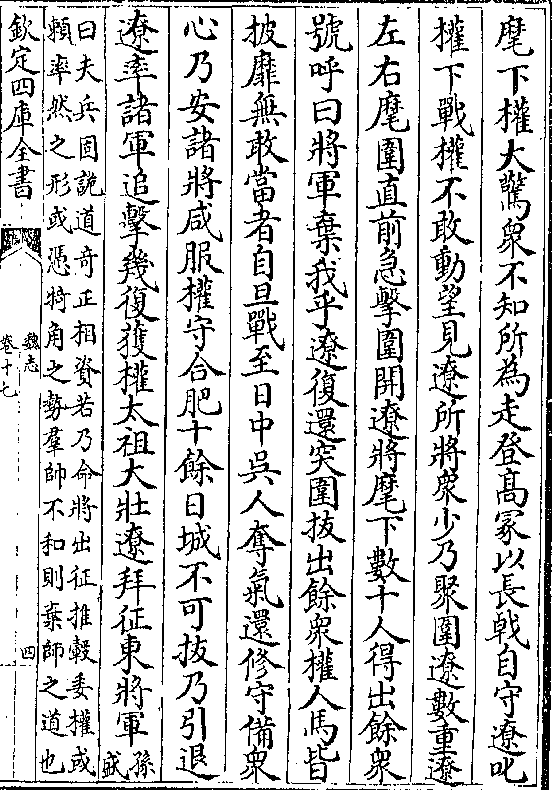 麾下權大驚衆不知所為走登髙冢以長㦸自守遼叱
權下戰權不敢動望見遼所將衆少乃聚圍遼數重遼
左右麾圍直前急擊圍開遼將麾下數十人得出餘衆
號呼曰將軍棄我乎遼復還突圍拔出餘衆權人馬皆
披靡無敢當者自旦戰至日中吳人奪氣還修守備衆
心乃安諸將咸服權守合肥十餘日城不可拔乃引退
遼率諸軍追擊幾復獲權太祖大壯遼拜征東將軍
孫
盛
曰夫兵固詭道奇正相資若乃命將出征推轂委權或
賴率然之形或憑犄角之勢羣師不和則棄師之道也
欽定四庫全書
魏志
卷十七
四